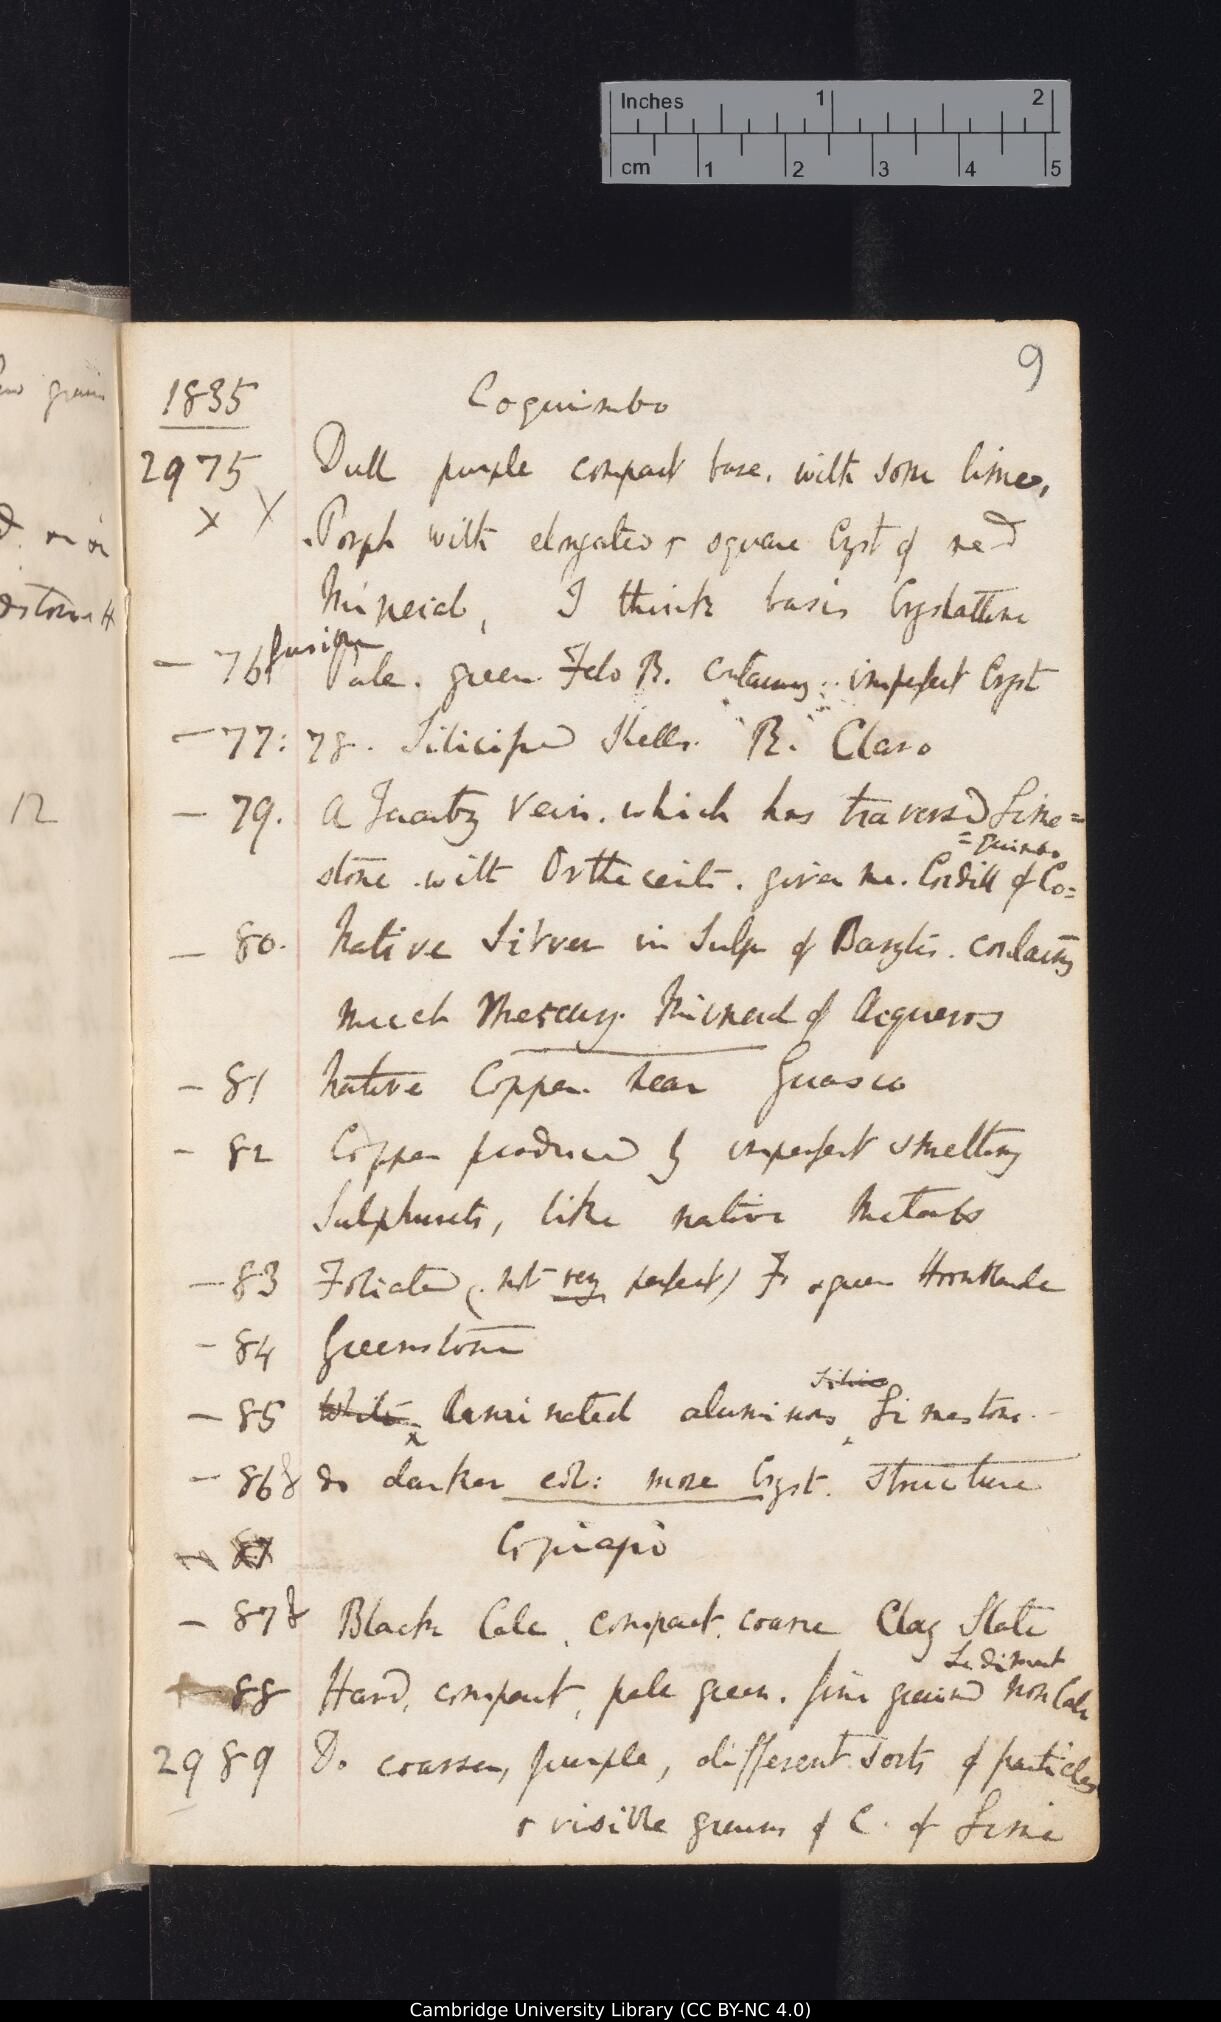 Inches 1 2
cm 1 2 3 4 5
9
1835 Coquimbo
2975 Dull purple compact base. with some lime,
x x Porph with elongated & square Cryst of red
Mineral, I think basis Crystalline
fusion
— 76 Pale. green Felds R. containing imperfect Cryst
— 77: 78. Silicified Shells. R. Claro
— 79. A Quartz Vein. which has traversed Lime=
=quimbo
stone with Orthocerite. given me. Cordill of Co=
— 80. Native Silver in Sulp of Barytes. containing
much Mercury. Mineral of Arqueros
— 81 Native Copper. near Guasco
— 82 Copper produced by imperfect smelting
Sulphurets, like native Metals
— 83 Foliated (not very perfect) F & green Hornblende
— 84 Greenstone
Silic
— 85 White Laminated aluminous Limestone
x
— 86 do darker col: more Cryst. structure
— 87 Copiapò
— 87 Black Calc, compact, coarse Clay Slate
Sediment
— 88 Hard, compact, pale green. fine grained non Calc
2989 Do coarser, purple, different sorts of particles
& visible grains of C. of Lime
12
Cambridge University Library (CC BY-NC 4.0)